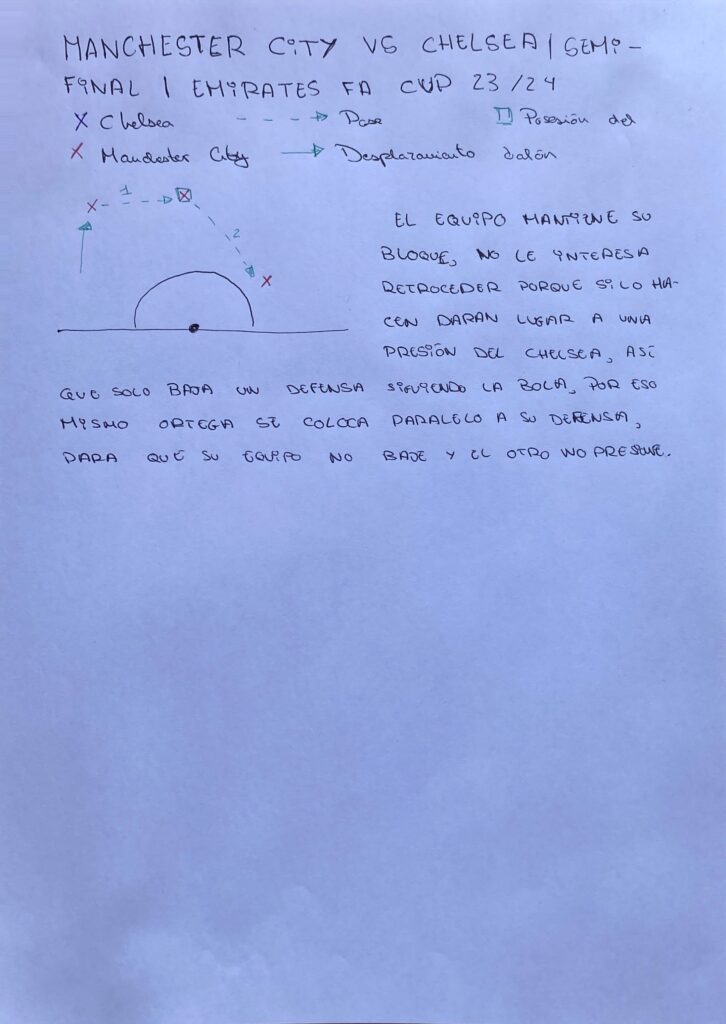 MANCHESTER CITY VS CHELSEA | SEMI-
FINAL | EMIRATES FA CUP 23/24
X Chelsea - - -> Pase Posesión del
X Manchester City -> Desplazamiento balón
1
2
EL EQUIPO MANTIENE SU
BLOQUE, NO LE INTERESA
RETROCEDER PORQUE SI LO HA-
CEN DARAN LUGAR A UNA
PRESIÓN DEL CHELSEA, ASÍ
QUE SOLO BAJA UN DEFENSA SIGUIENDO LA BOLA, POR ESO
MISMO ORTEGA SE COLOCA PARALELO A SU DEFENSA,
PARA QUE SU EQUIPO NO BAJE Y EL OTRO NO PRESIONE.